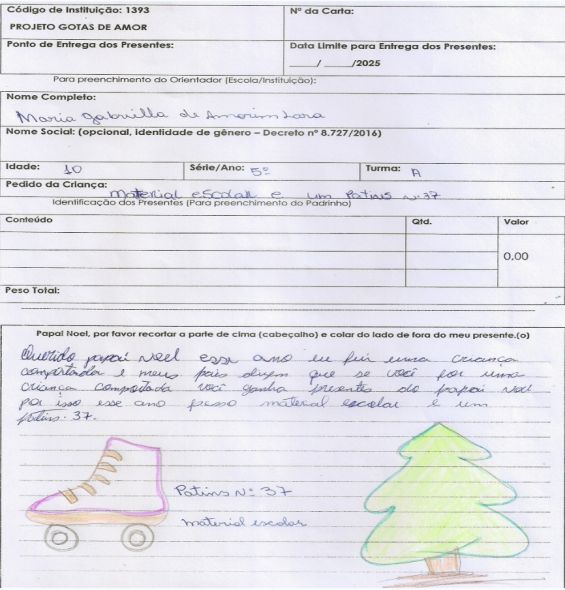 Código de Instituição: 1393
Nº da Carta:
PROJETO GOTAS DE AMOR
Ponto de Entrega dos Presentes:
Data Limite para Entrega dos Presentes:
___/ ___/2025
Para preenchimento do Orientador (Escola/Instituição):
Nome Completo:
Maria Gabriella de Amorim Lara
Nome Social: (opcional, identidade de gênero – Decreto nº 8.727/2016)
Idade: 10 Série/Ano: 5º Turma: A
Pedido da Criança:
material escolar e um Patins nº 37
Identificação dos Presentes (Para preenchimento do Padrinho)
Conteúdo Qtd. Valor
0,00
Peso Total:
Papai Noel, por favor recortar a parte de cima (cabeçalho) e colar do lado de fora do meu presente.(o)
Querido papai Noel esse ano eu fui uma criança
comportada e meus pais dizem que se você for uma
criança comportada você ganha presentes do papai Noel
por isso esse ano peço material escolar e um
patins. 37.
Patins Nº 37
material escolar